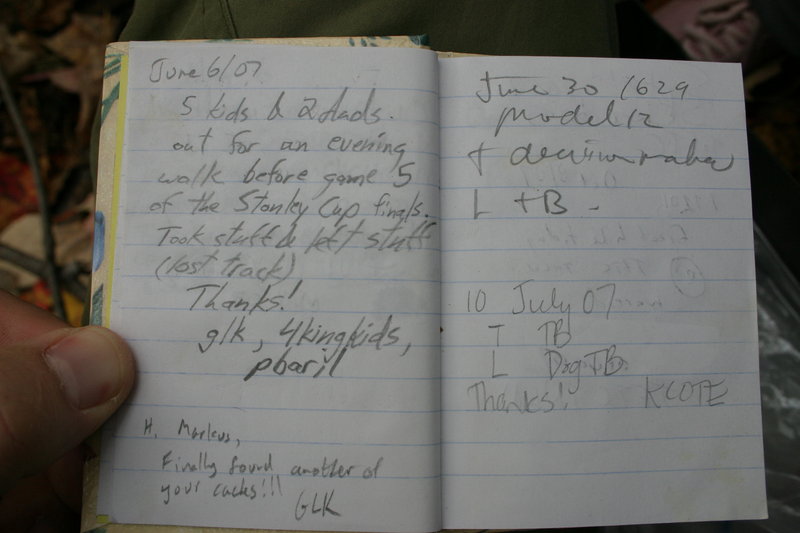 June 6/07
5 kids & 2 dads.
out for an evening
walk before game 5
of the Stanley Cup finals.
Took stuff & left stuff
(lost track)
Thanks!
glk, 4kingkids,
pbaril
H. Markus,
Finally found another of
your caches!!!
GLK
June 30 1629
Model12
+ decisionmaker
L + B -
10 July 07
T TB
L Dog TB
Thanks! KCOTE